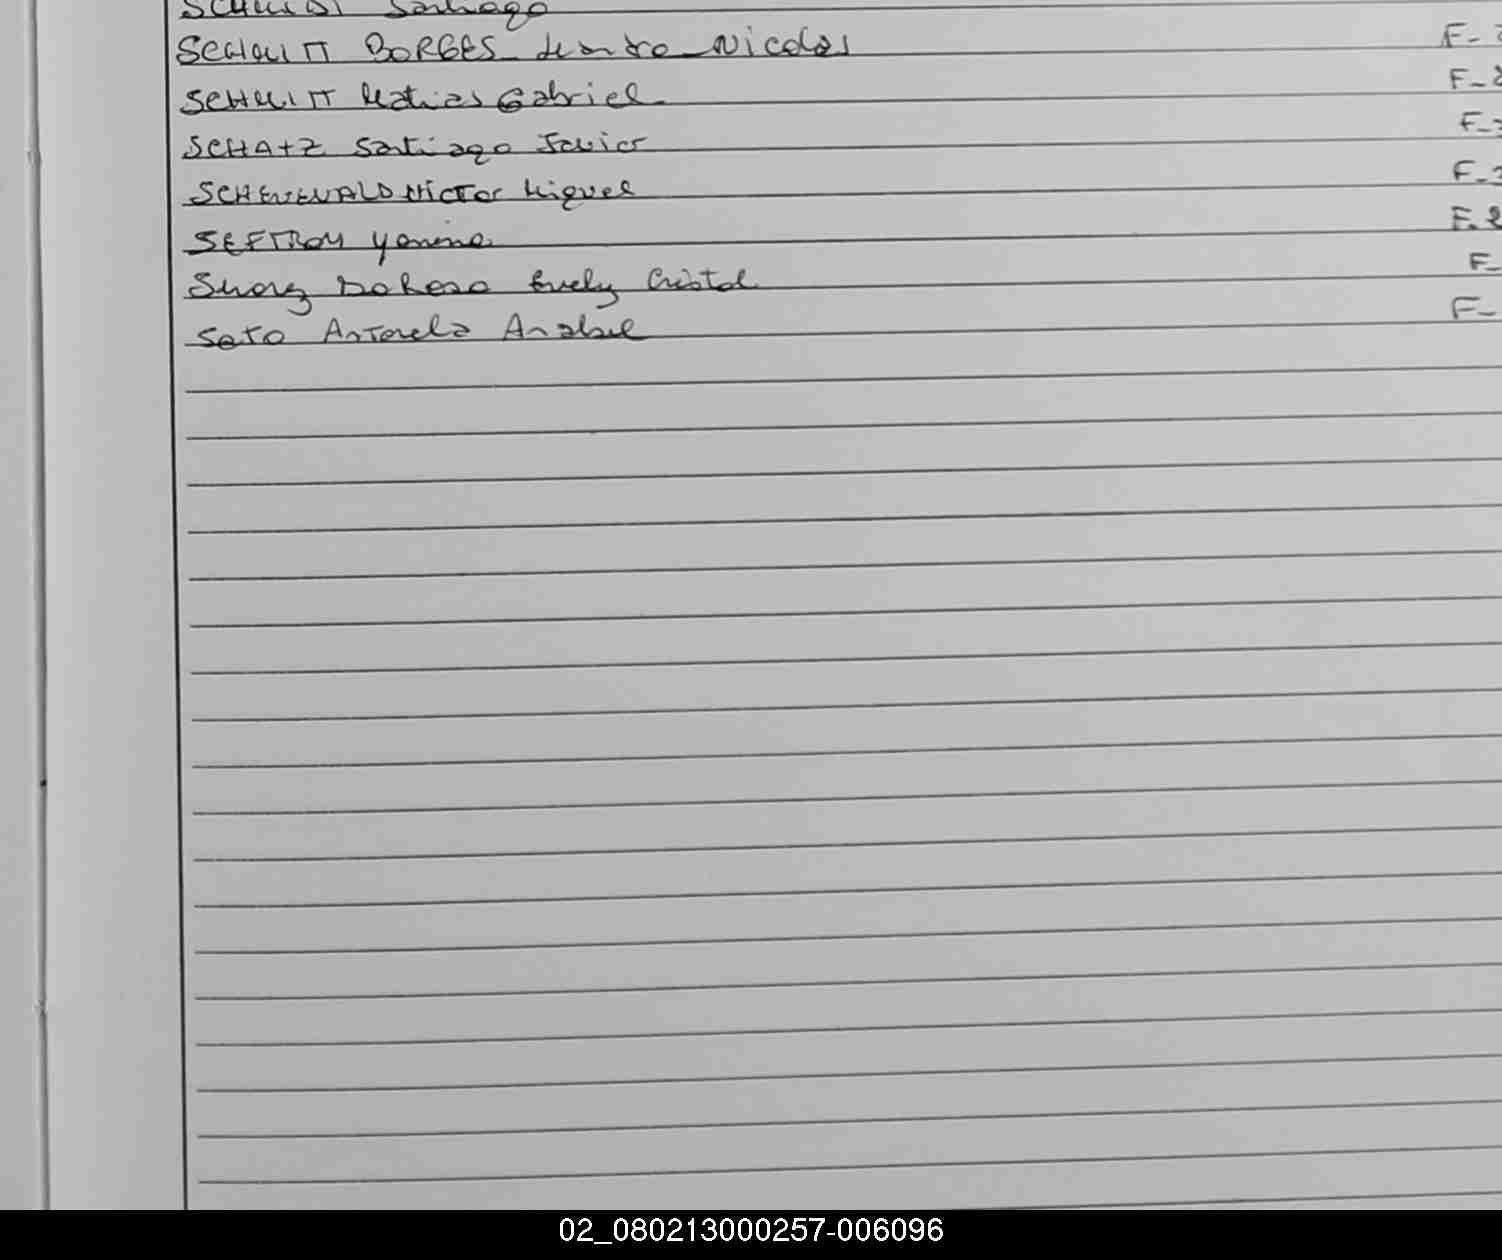 SCHMIDT Santiago
SCHMITT BORGES Leandro Nicolas F-
SCHMITT Matias Gabriel F-
SCHATZ Santiago Javier F-
Victor Miguel F-
SEFTROM Yanina F.
Cristal F-
Soto Antonela Anabel F-
02_080213000257-006096